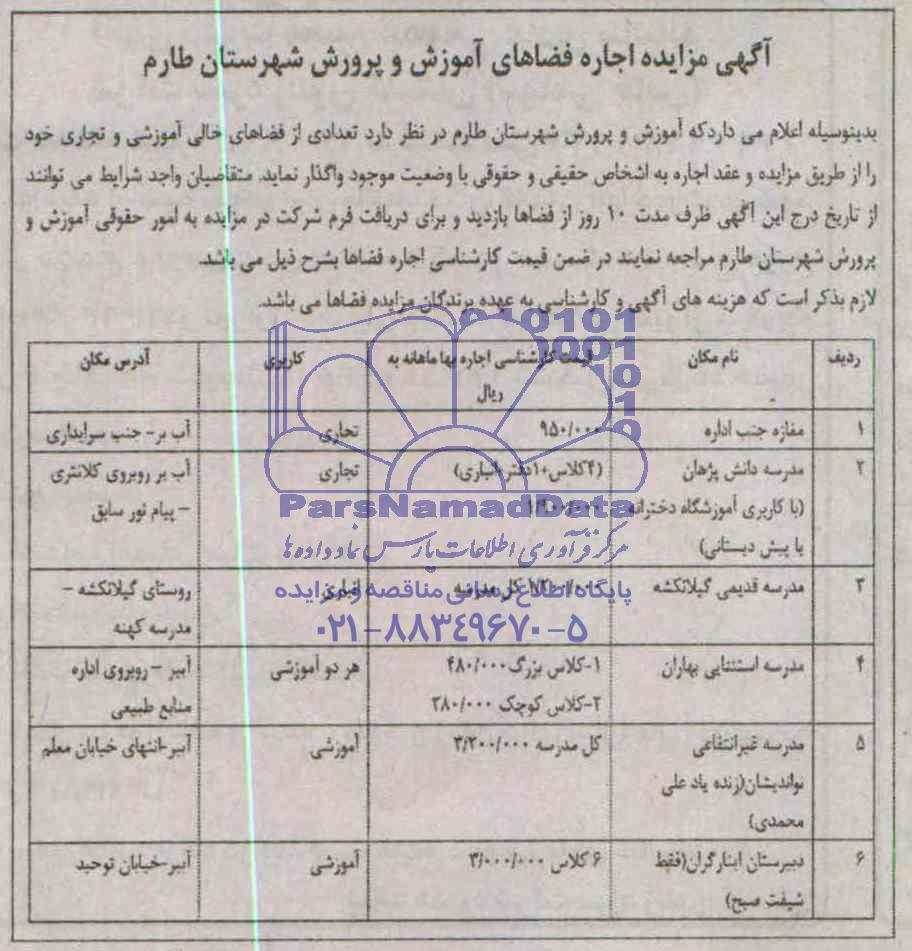 آگهی مزایده اجاره فضاهای آموزش و پرورش شهرستان طارم
بدینوسیله اعلام می داردکه آموزش و پرورش شهرستان طارم در نظر دارد تعدادی از فضاهای خالی آموزشی و تجاری خود
را از طریق مزایده و عقد اجاره به اشخاص حقیقی و حقوقی با وضعیت موجود واگذار نماید. متقاضیان واجد شرایط می توانند
از تاریخ درج این آگهی ظرف مدت ۱۰ روز از فضاها بازدید و برای دریافت فرم شرکت در مزایده به امور حقوقی آموزش و
پرورش شهرستان طارم مراجعه نمایند در ضمن قیمت کارشناسی اجاره فضاها بشرح ذیل می باشد.
لازم بذکر است که هزینه های آگهی و کارشناسی به عهده برندگان مزایده فضاها می باشد.
ردیف نام مکان قیمت کارشناسی اجاره بها ماهانه به کاربری آدرس مکان
ریال
۱ مغازه جنب اداره ۹۵۰/۰۰۰ تجاری آب بر- جنب سرایداری
۲ مدرسه دانش پژهان (۴کلاس+۱دفتر+انباری) تجاری آب بر روبروی کلانتری
(با کاربری آموزشگاه دخترانه – پیام نور سابق
یا پیش دبستانی)
۳ مدرسه قدیمی گیلانکشه کل مدرسه انباری روستای گیلانکشه –
مدرسه کهنه
۴ مدرسه استثنایی بهاران ۱-کلاس بزرگ۴۸۰/۰۰۰ هر دو آموزشی آببر – روبروی اداره
۲-کلاس کوچک ۲۸۰/۰۰۰ منابع طبیعی
۵ مدرسه غیرانتفاعی کل مدرسه ۳/۲۰۰/۰۰۰ آموزشی آببر-انتهای خیابان معلم
نواندیشان(زنده یاد علی
محمدی)
۶ دبیرستان ایثارگران(فقط ۶ کلاس ۳/۰۰۰/۰۰۰ آموزشی آببر-خیابان توحید
شیفت صبح)
ParsNamadData
مرکز فرآوری اطلاعات پارس نماد داده ها
پایگاه اطلاع رسانی مناقصه و مزایده
۰۲۱-۸۸۳۴۹۶۷۰-۵